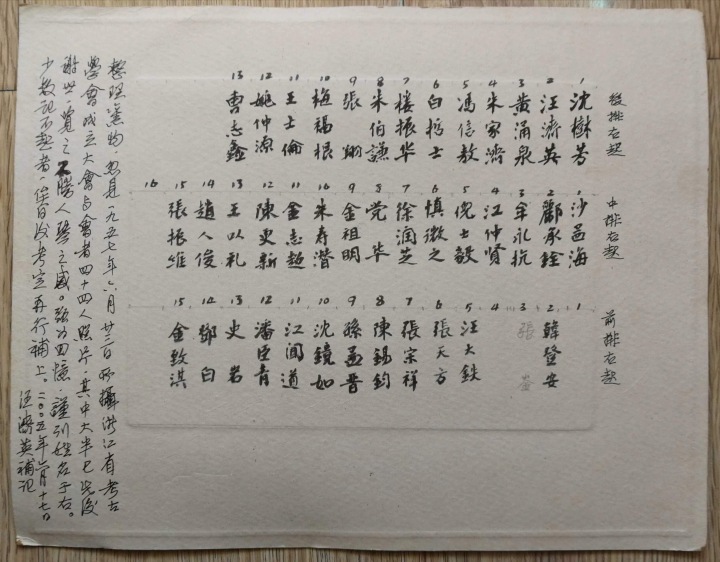 後排右起
1 沈樹芳
2 汪濟英
3 黄涌泉
4 朱家濟
5 馮信敖
6 白哲士
7 楼振华
8 朱伯謙
9 張翔
10 梅福根
11 王士倫
12 姚仲源
13 曹志鑫
中排右起
1 沙孟海
2 酈承銓
3 牟永抗
4 江仲賢
5 倪士毅
6 慎微之
7 徐润芝
8 党华
9 金祖明
10 朱寿潜
11 金志超
12 陳文新
13 王以礼
14 趙人俊
15 張振維
16
前排右起
1
2 韓登安
3 張崟
4
5 汪大鉄
6 張天方
7 張宗祥
8 陳錫鈞
9 孫孟晋
10 沈鏡如
11 江聞道
12 潘臣青
13 史岩
14 鄧白
15 金敦淇
整理舊物，忽見一九五七年六月廿三日所攝浙江省考古
學會成立大會与會者四十四人照片，其中大半已先後
謝世，覽之不勝人琴之感。強为回憶，謹列姓名于右。
少数记不起者，俟日後考定再行補上。二〇〇五年六月十七日
汪濟英補记